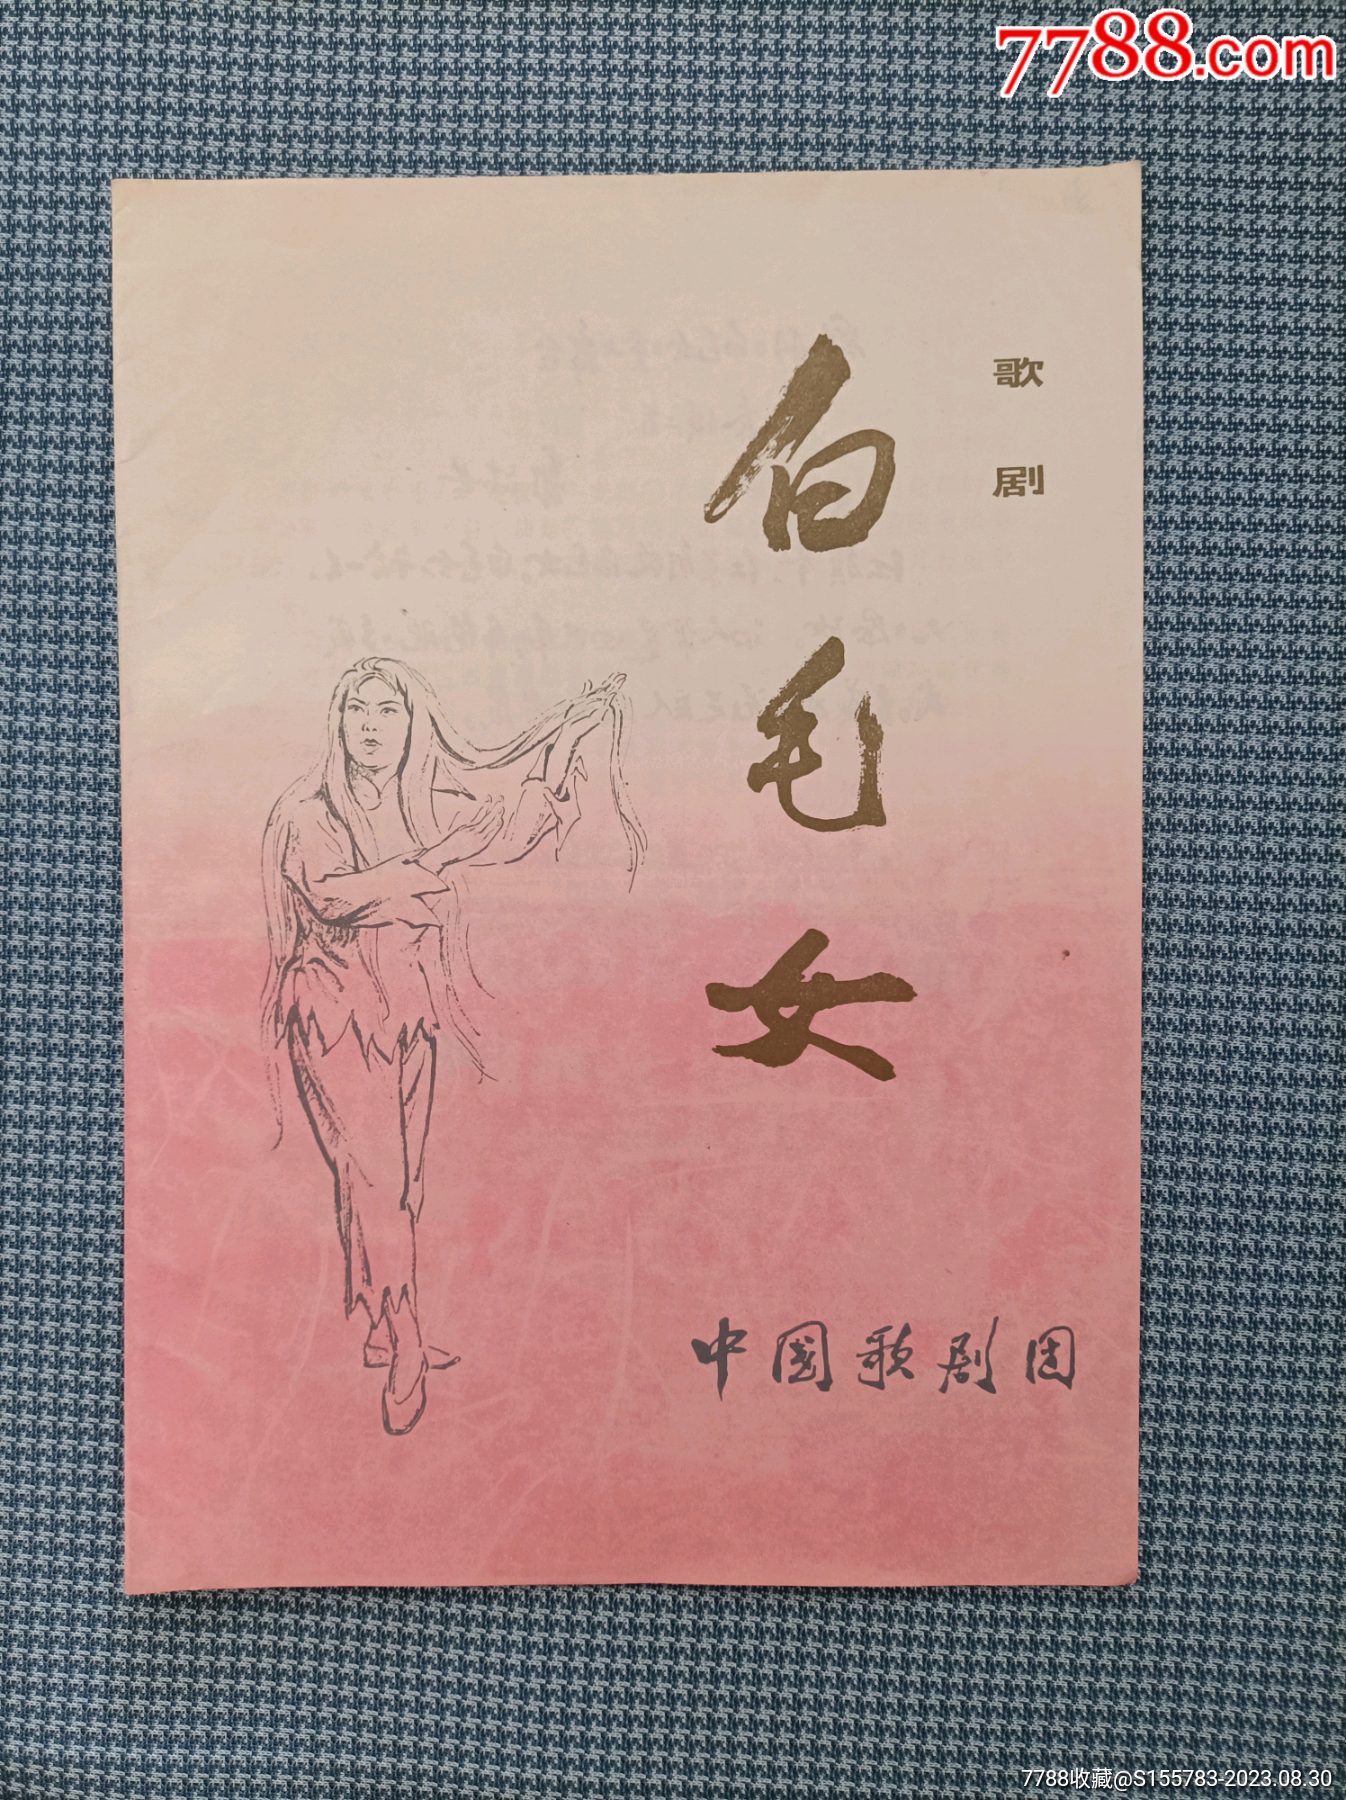 7788.com
歌剧
白毛女
中国歌剧团
7788收藏@S155783-2023.08.30